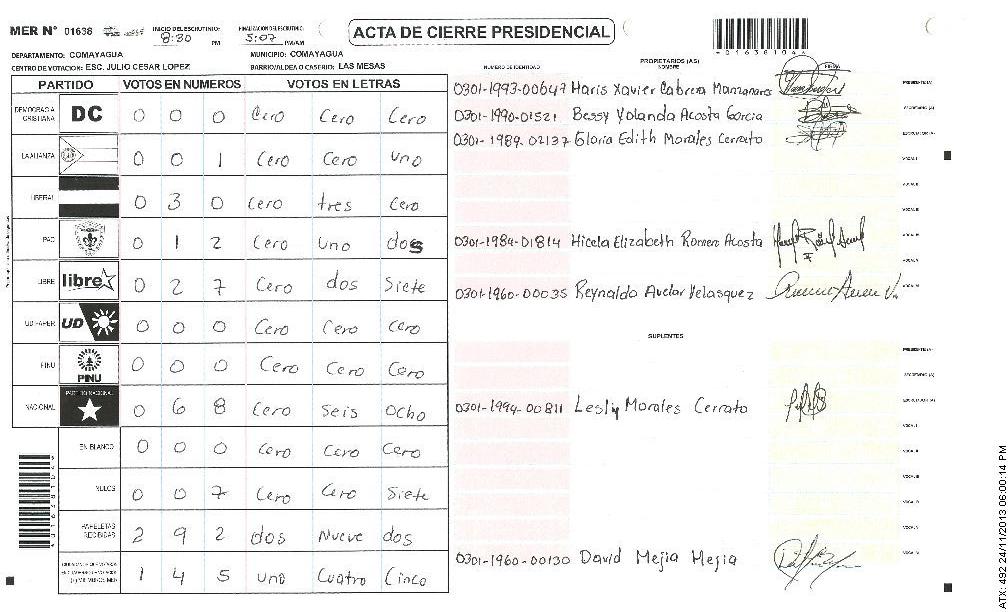 MER Nº 01638 INICIO DEL ESCRUTINIO: 8:30 PM FINALIZACION DEL ESCRUTINIO: 5:07 PM/AM
ACTA DE CIERRE PRESIDENCIAL
*01638104*
DEPARTAMENTO: COMAYAGUA MUNICIPIO: COMAYAGUA
CENTRO DE VOTACION: ESC. JULIO CESAR LOPEZ BARRIO/ALDEA O CASERIO: LAS MESAS
PARTIDO VOTOS EN NUMEROS VOTOS EN LETRAS
DEMOCRACIA CRISTIANA DC 0 0 0 Cero Cero Cero
LA ALIANZA 0 0 1 Cero Cero uno
LIBERAL 0 3 0 Cero tres Cero
PAC 0 1 2 Cero uno dos
LIBRE libre 0 2 7 Cero dos Siete
UD FAPER UD 0 0 0 Cero Cero Cero
PINU PINU 0 0 0 Cero Cero Cero
NACIONAL PARTIDO NACIONAL 0 6 8 Cero Seis Ocho
EN BLANCO 0 0 0 Cero Cero Cero
NULOS 0 0 7 Cero Cero Siete
PAPELETAS RECIBIDAS 2 9 2 dos Nueve dos
1 4 5 uno Cuatro Cinco
PROPIETARIOS (AS)
NUMERO DE IDENTIDAD NOMBRE FIRMA
0301-1993-00647 Haris Xavier Cabrera Manzanares PRESIDENTE (A)
0301-1990-01521 Bessy Yolanda Acosta Garcia SECRETARIO (A)
0301-1989-02137 Gloria Edith Morales Cerrato ESCRUTADOR (A)
VOCAL I
VOCAL II
VOCAL III
0301-1984-01814 Hicela Elizabeth Romero Acosta VOCAL IV
VOCAL V
0301-1960-00035 Reynaldo Avelar Velasquez VOCAL VI
SUPLENTES
PRESIDENTE (A)
SECRETARIO (A)
0301-1994-00811 Lesliy Morales Cerrato ESCRUTADOR (A)
VOCAL I
VOCAL II
VOCAL III
VOCAL IV
VOCAL V
0301-1960-00130 David Mejia Mejia VOCAL VI
ATX: 492 24/11/2013 06:00:14 PM